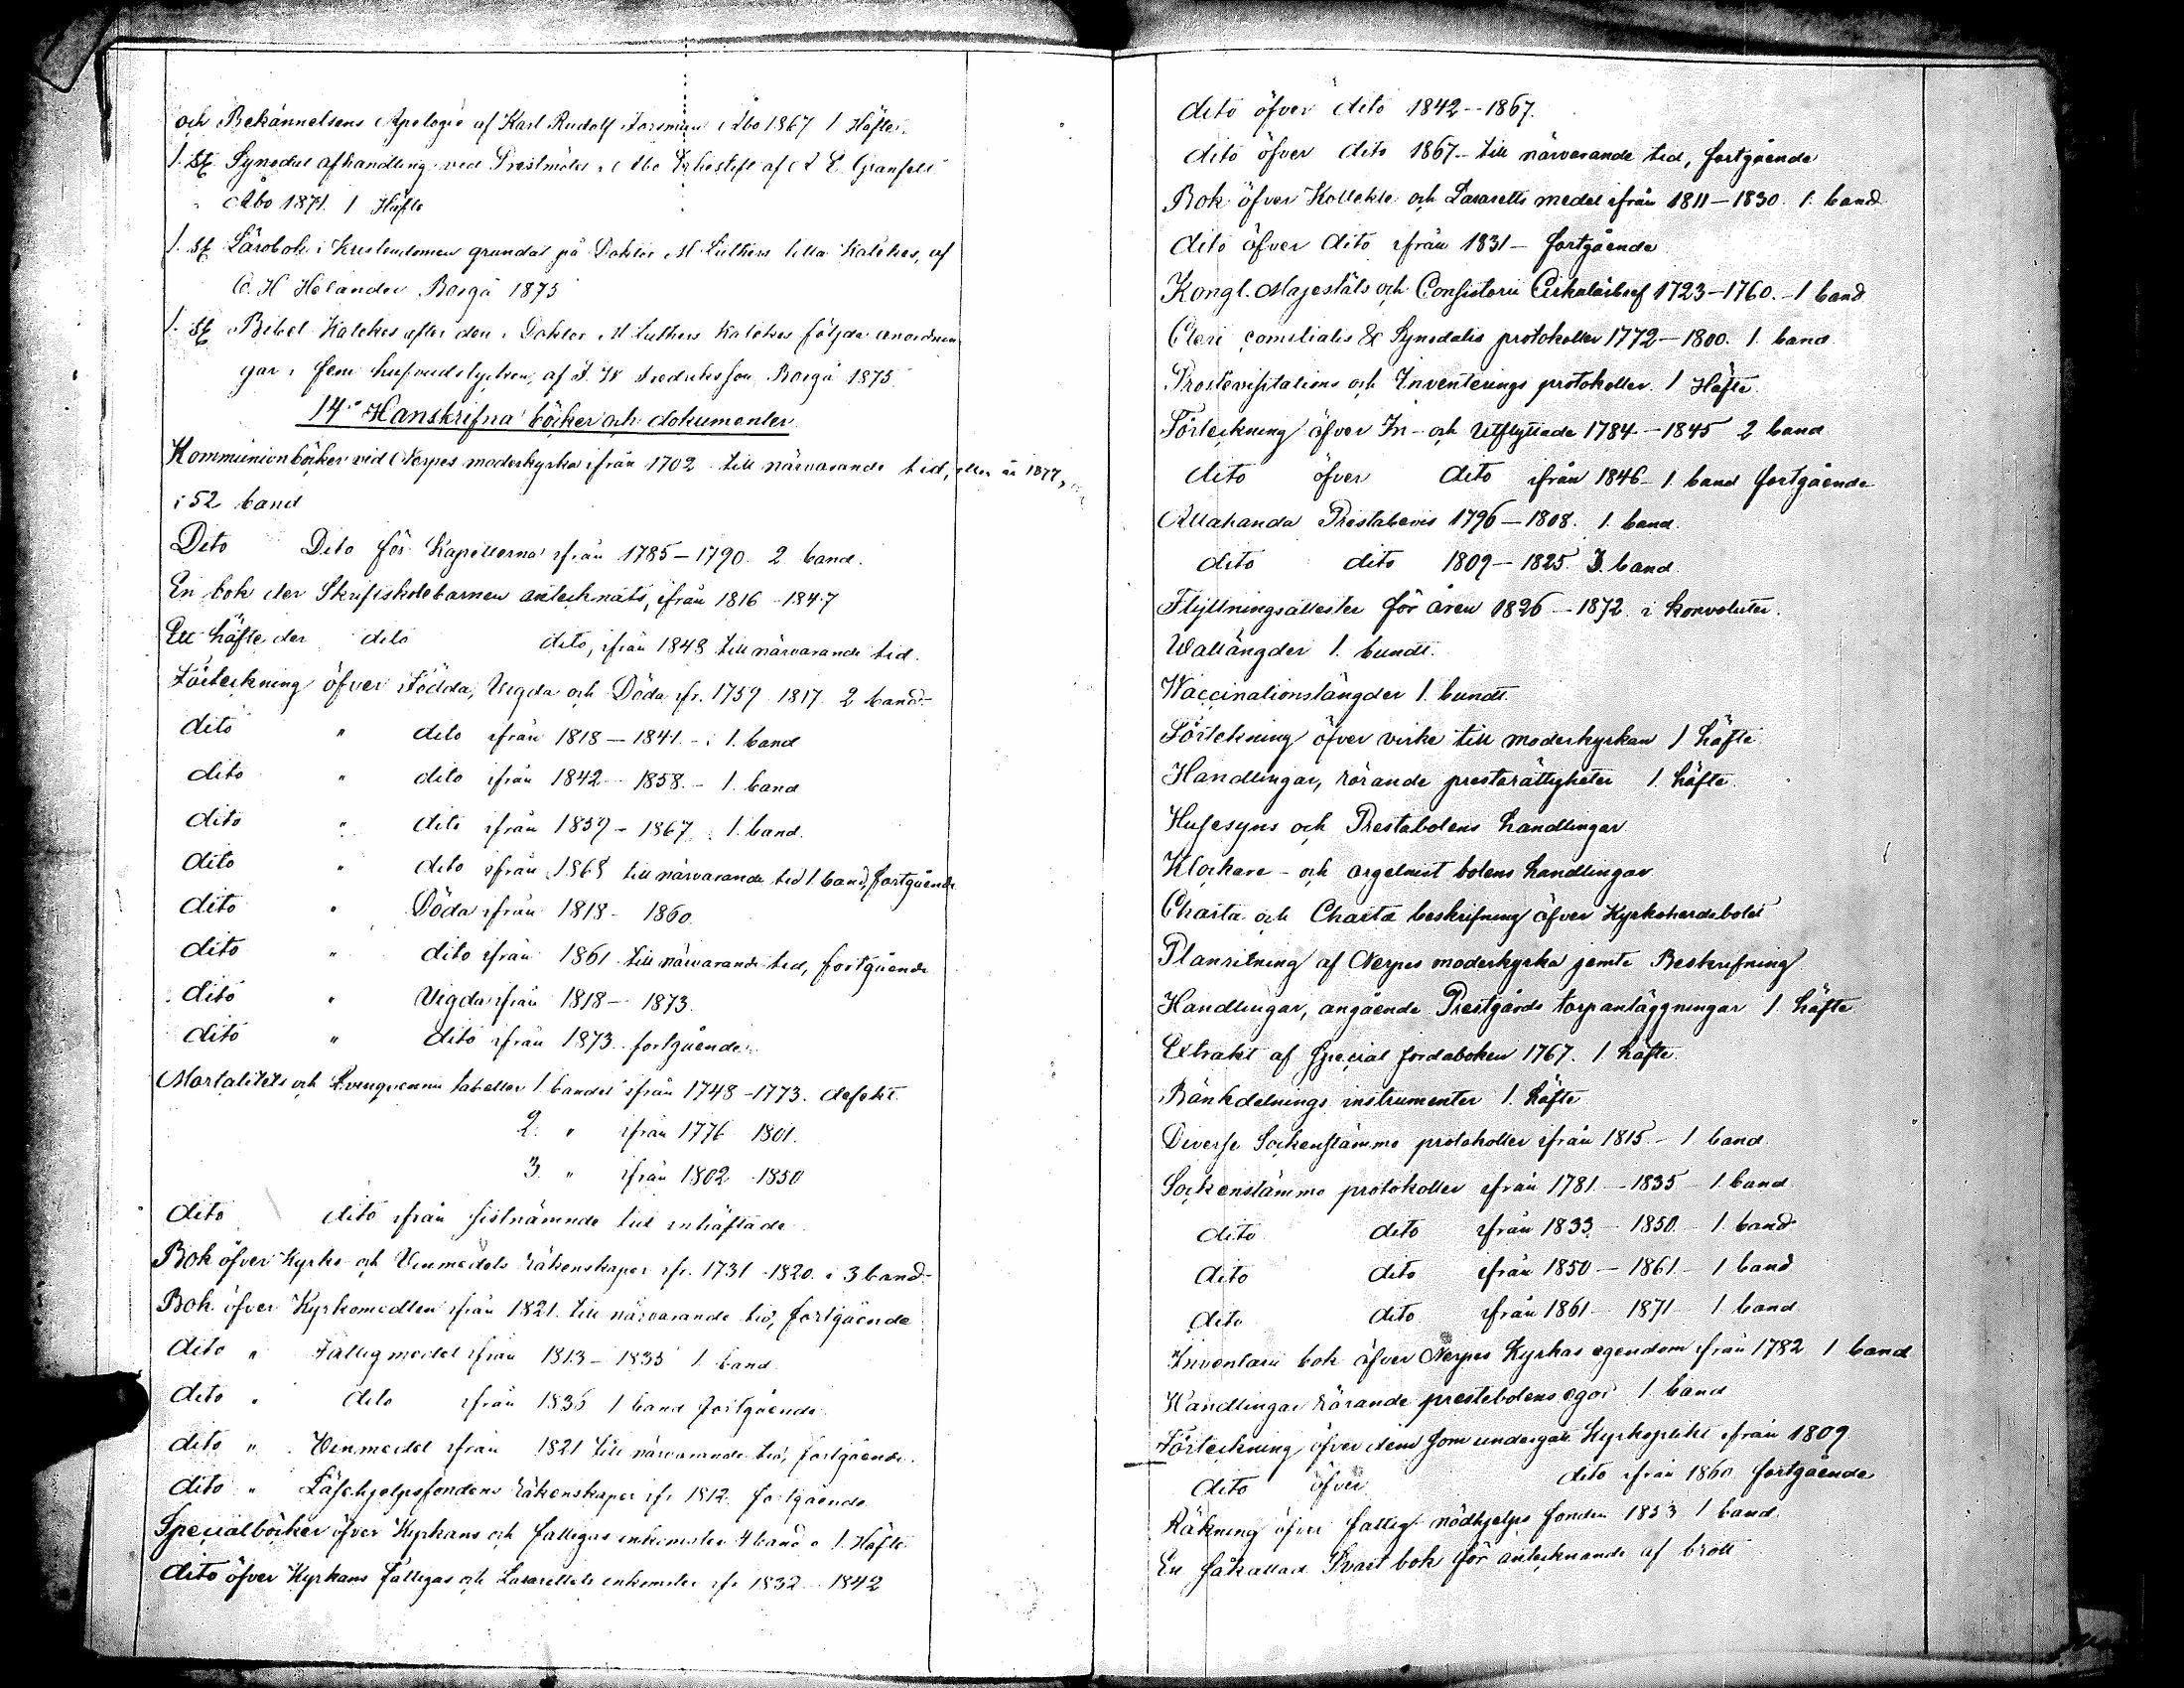 och Bekännelsens Apologie af Karl Rudolf Forsman Åbo 1867 1 Häfte.
1. st. Synodal afhandling vid Prestmötet i Åbo Erkestift af A E Granfelt
Åbo 1871. 1 Häfte
1. st. Lärobok i Kristendomen grundad på Doktor M Luthers lilla Katekes, af
C. H Helander Borgå 1875
1. st. Bibel Katekes efter den i Doktor M Luthers Katekes följda anordnin
gar i fem hufvudstycken, af J. W Fredriksson Borgå 1875.
14o Hanskrifna böcker och dokumenter
Kommunionböcker vid Nerpes moderkyrka ifrån 1702 till närvarande tid, eller år 1877,
i 52 band
Dito Dito för Kapellerna ifrån 1785-1790. 2 band.
En bok der Skriftskolebarnen antecknats, ifrån 1816-1847
Ett häfte der dito dito, ifrån 1848 till närvarande tid.
Förteckning öfver Födda, Vigda och Döda ifr. 1759 1817 2 band
dito " dito ifrån 1818-1841 - i 1. band
dito " dito ifrån 1842-1858. - 1. band
dito " dito ifrån 1859-1867 i 1. band.
dito " dito ifrån 1868 till närvarande tid 1. band, fortgående
dito " Döda ifrån 1818-1860.
dito " dito ifrån 1861 till närvarande tid, fortgående
dito " Vigda ifrån 1818-1873.
dito " dito ifrån 1873. fortgående.
Mortalitets och Qvinquennii tabeller 1. bandet ifrån 1748-1773. defekt.
2. " ifrån 1776 1801.
3. " ifrån 1802-1850
dito dito ifrån sistnämnde tid inhäftade
Bok öfver Kyrko och Vinmedels räkenskaper ifr. 1731-1820. i 3 band
Bok öfver Kyrkomedlen ifrån 1821. till närvarande tid, fortgående
dito " Fattigmedel ifrån 1813-1835 1. band
dito " dito ifrån 1836 1 band fortgående
dito " Vinmedel ifrån 1821 till närvarande tid, fortgående.
dito " Läsehjelpsfondens räkenskaper ifr 1812. fortgående
Specialböcker öfver Kyrkans och fattigas inkomster 4 band o 1. Häfte.
dito öfver Kyrkans fattigas och Lasarettets inkomster ifr 1832-1842
dito öfver dito 1842-1867.
dito öfver dito 1867- till närvarande tid, fortgående
Bok öfver Kollekte och Lasaretts medel ifrån 1811-1830. 1. band
dito öfver dito ifrån 1831- fortgående
Kongl. Majestäts och Consistorii Cirkulärbref 1723-1760. - 1 band
Cleri comitialis & Synodalis protokoller 1772-1800. 1. band.
Prostevisitations och Inventerings protokoller. 1 Häfte.
Förteckning öfver In- och Utflyttade 1784-1845 2 band
dito öfver dito ifrån 1846- 1. band fortgående
Allahanda Prestabevis 1796-1808. 1. band.
dito dito 1809-1825. 3. band
Flyttningsattester för åren 1826-1872. i konvoluter.
Wallängder 1. bundt.
Waccinationslängder 1. bundt.
Förteckning öfver virke till moderkyrkan 1 häfte.
Handlingar, rörande presterättigheter 1. häfte.
Husesyns och Prestabolens handlingar
Klockare- och orgelnist bolens handlingar.
Charta och Charta beskrifning öfver Kyrkoherdebolet
Planritning af Nerpes moderkyrka jemte Beskrifning
Handlingar, angående Prestgårds torpanläggningar 1. häfte
Extrakt af Special Jordaboken 1767. 1. häfte.
Bänkdelnings instrumenter 1. häfte
Diverse Sockenstämmo protokoller ifrån 1815- 1. band.
Sockenstämmo protokoller ifrån 1781.-1835- 1. band
dito dito ifrån 1833-1850- 1. band
dito dito ifrån 1850-1861- 1 band
dito dito ifrån 1861-1871- 1 band
Inventarii bok öfver Nerpes Kyrkas egendom ifrån 1782 1 band
Handlingar rörande prestebolens egor 1. band
Förteckning öfver dem som undergått Kyrkoplikt ifrån 1809
dito öfver dito ifrån 1860 fortgående
Räkning öfver fattig nödhjelps fonden 1853 1 band.
En såkallad Svart bok för antecknande af brott